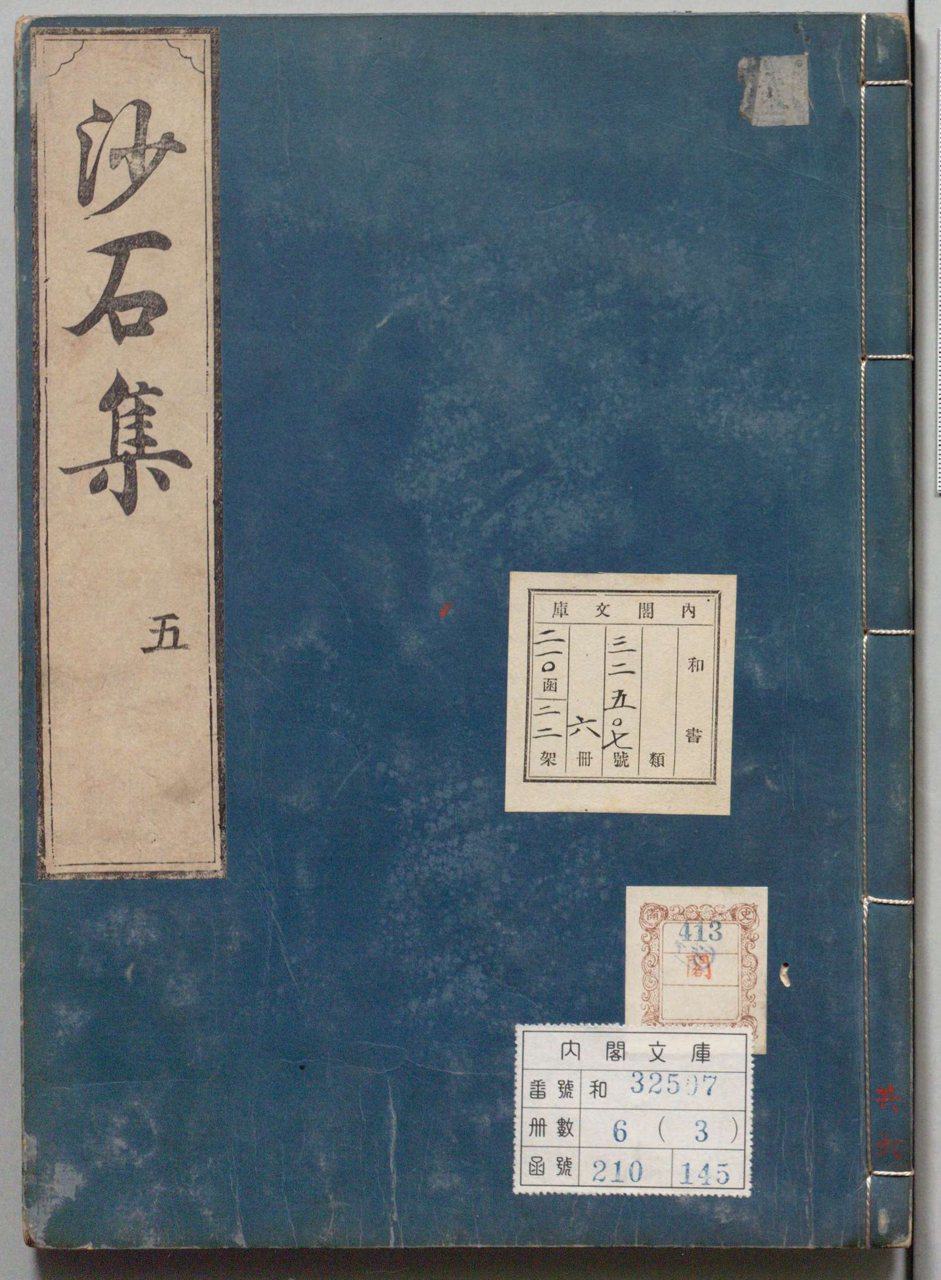 沙石集
五
內閣文庫
和書
類
三二五〇七號
六冊
二一〇函
二二架
史
413
閣
內閣文庫
番號 和 32507
冊數 6 (3)
函號 210 145
共六